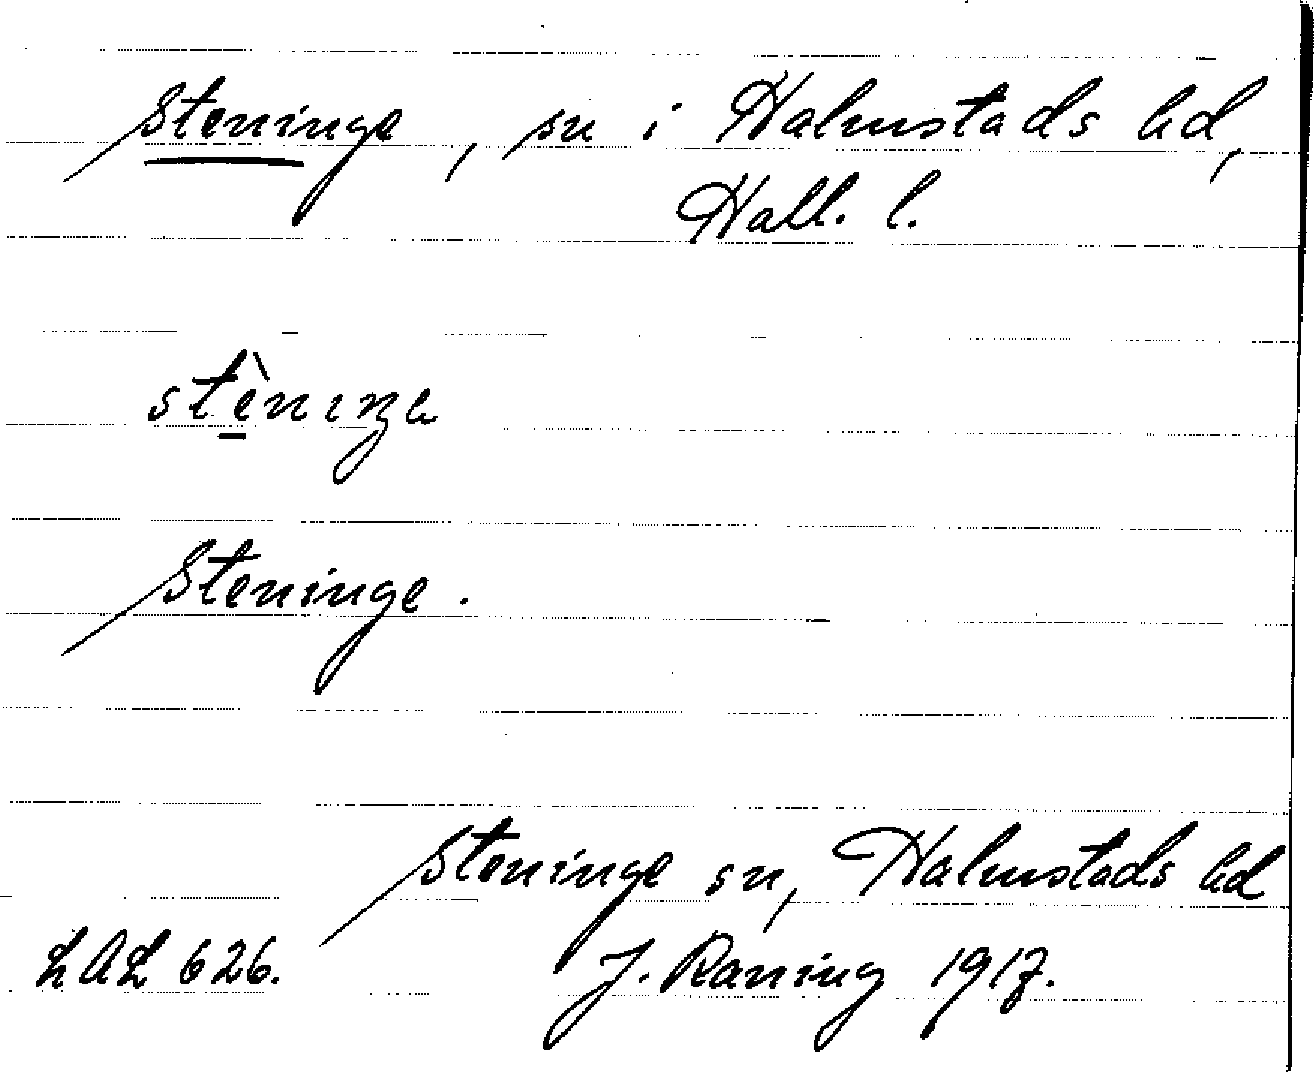 Steninge, sn i Halmstads hd,
Hall. l.
Steninge.
Steninge sn, Halmstads hd
LAL 626. J. Ranning 1917.